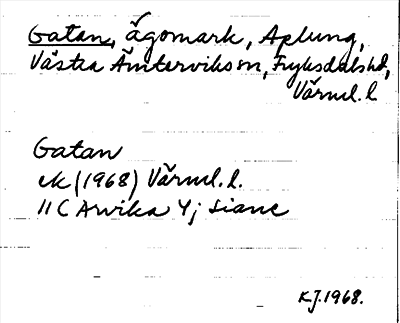 Gatan, ägomark, Aplung,
Västra Ämterviks sn, Fryksdals hd,
Värml. l.
Gatan
ek (1968) Värml. l.
11 C Arvika
K.J. 1968.